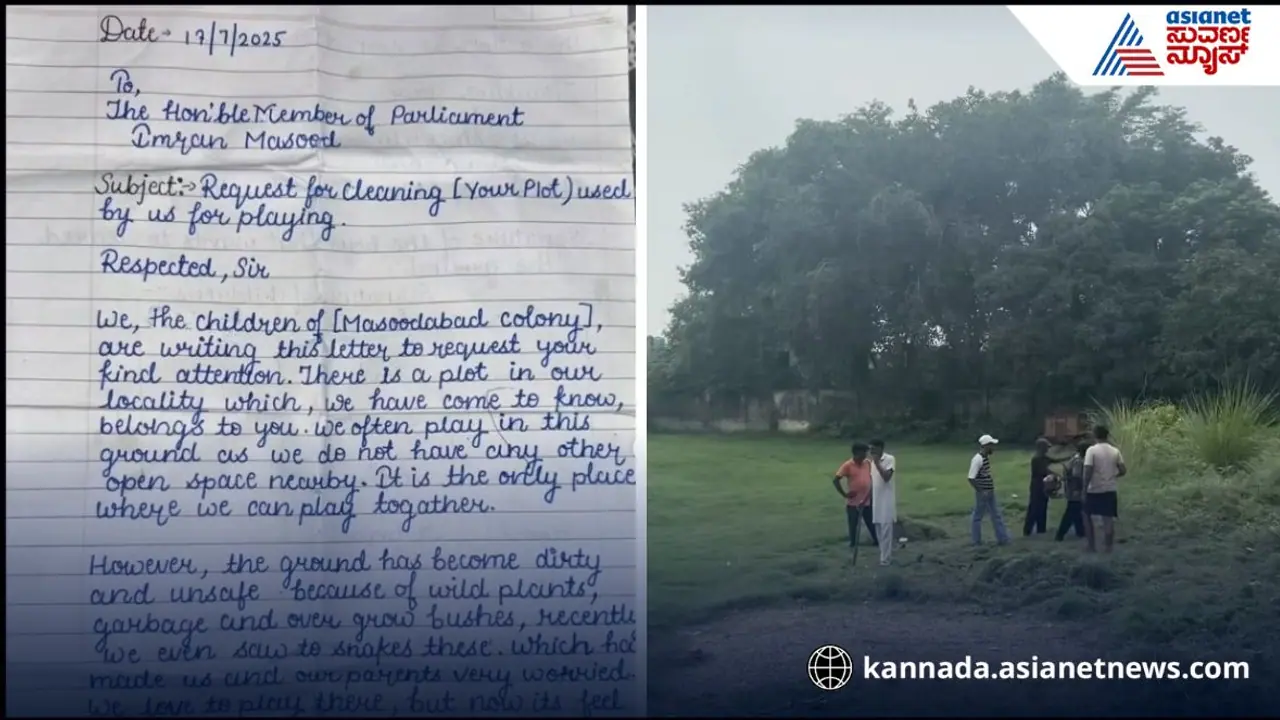 Date- 17/7/2025
To,
The Hon'ble Member of Parliament
Imran Masood
Subject:-> Request for cleaning [Your Plot) used
by us for playing.
Respected, Sir
We, the children of [Masoodabad colony],
are writing this letter to request your
kind attention. There is a plot in our
locality which, we have come to know,
belongs to you. we often play in this
ground as we do not have any other
open space nearby. It is the only place
where we can play togather.
However, the ground has become dirty
and unsafe because of wild plants,
garbage and over grow bushes, recently
we even saw to snakes these. which has
made us and our parents very worried.
We love to play there, but now its feel
asianet
ಸುವರ್ಣ
ನ್ಯೂಸ್
kannada.asianetnews.com